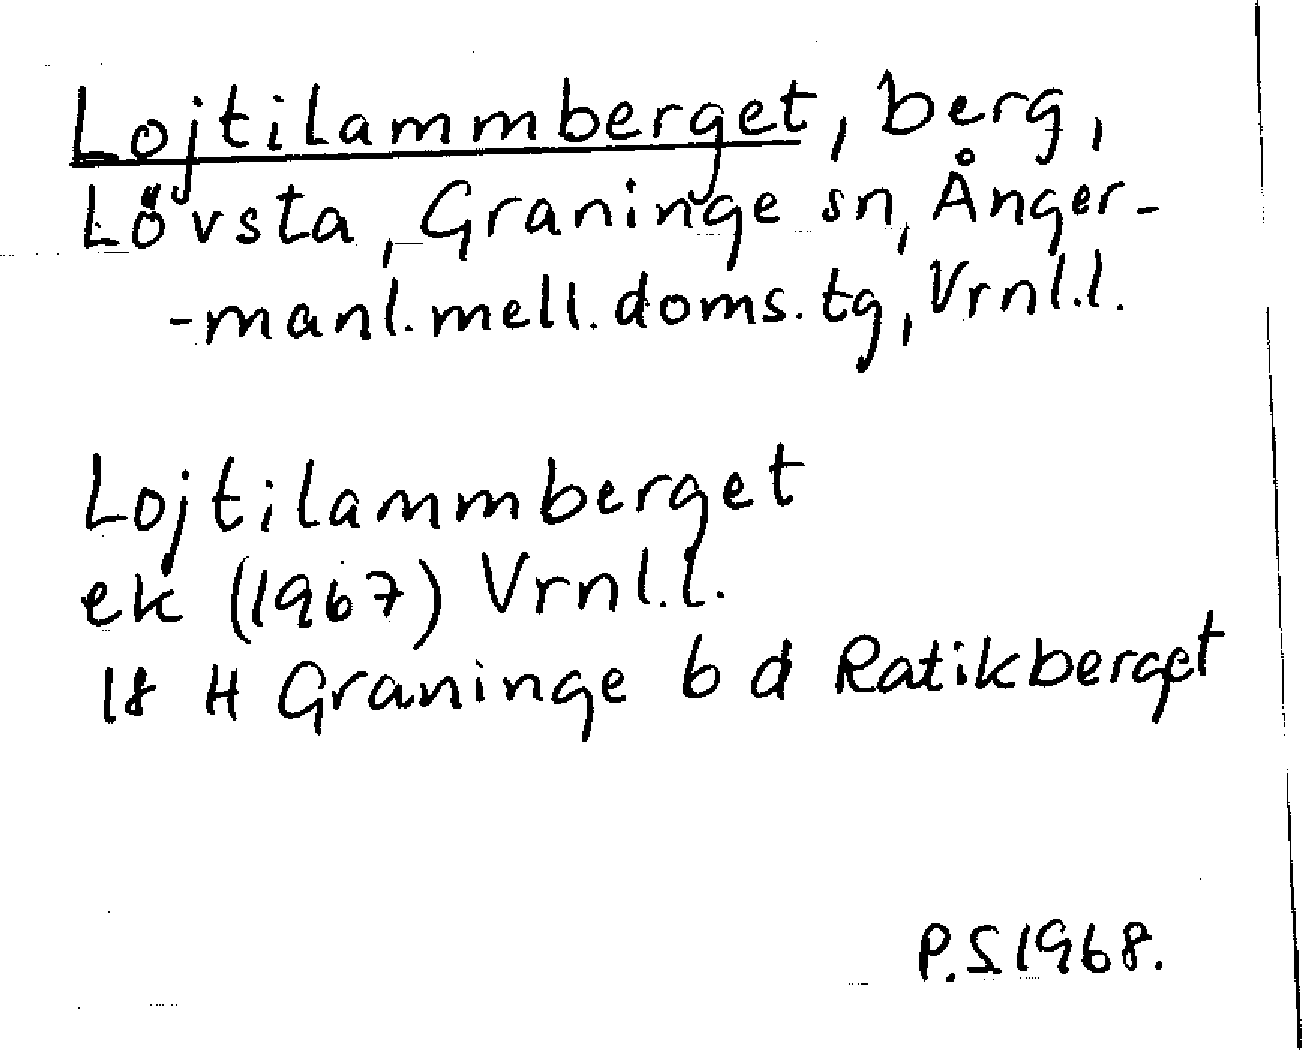 Lojtilammberget, berg,
Lövsta, Graninge sn, Ånger-
-manl. mell. doms. tg, Vrnl.l.
Lojtilammberget
ek (1967) Vrnl.l.
18 H Graninge b d Ratikberget
P.S 1968.